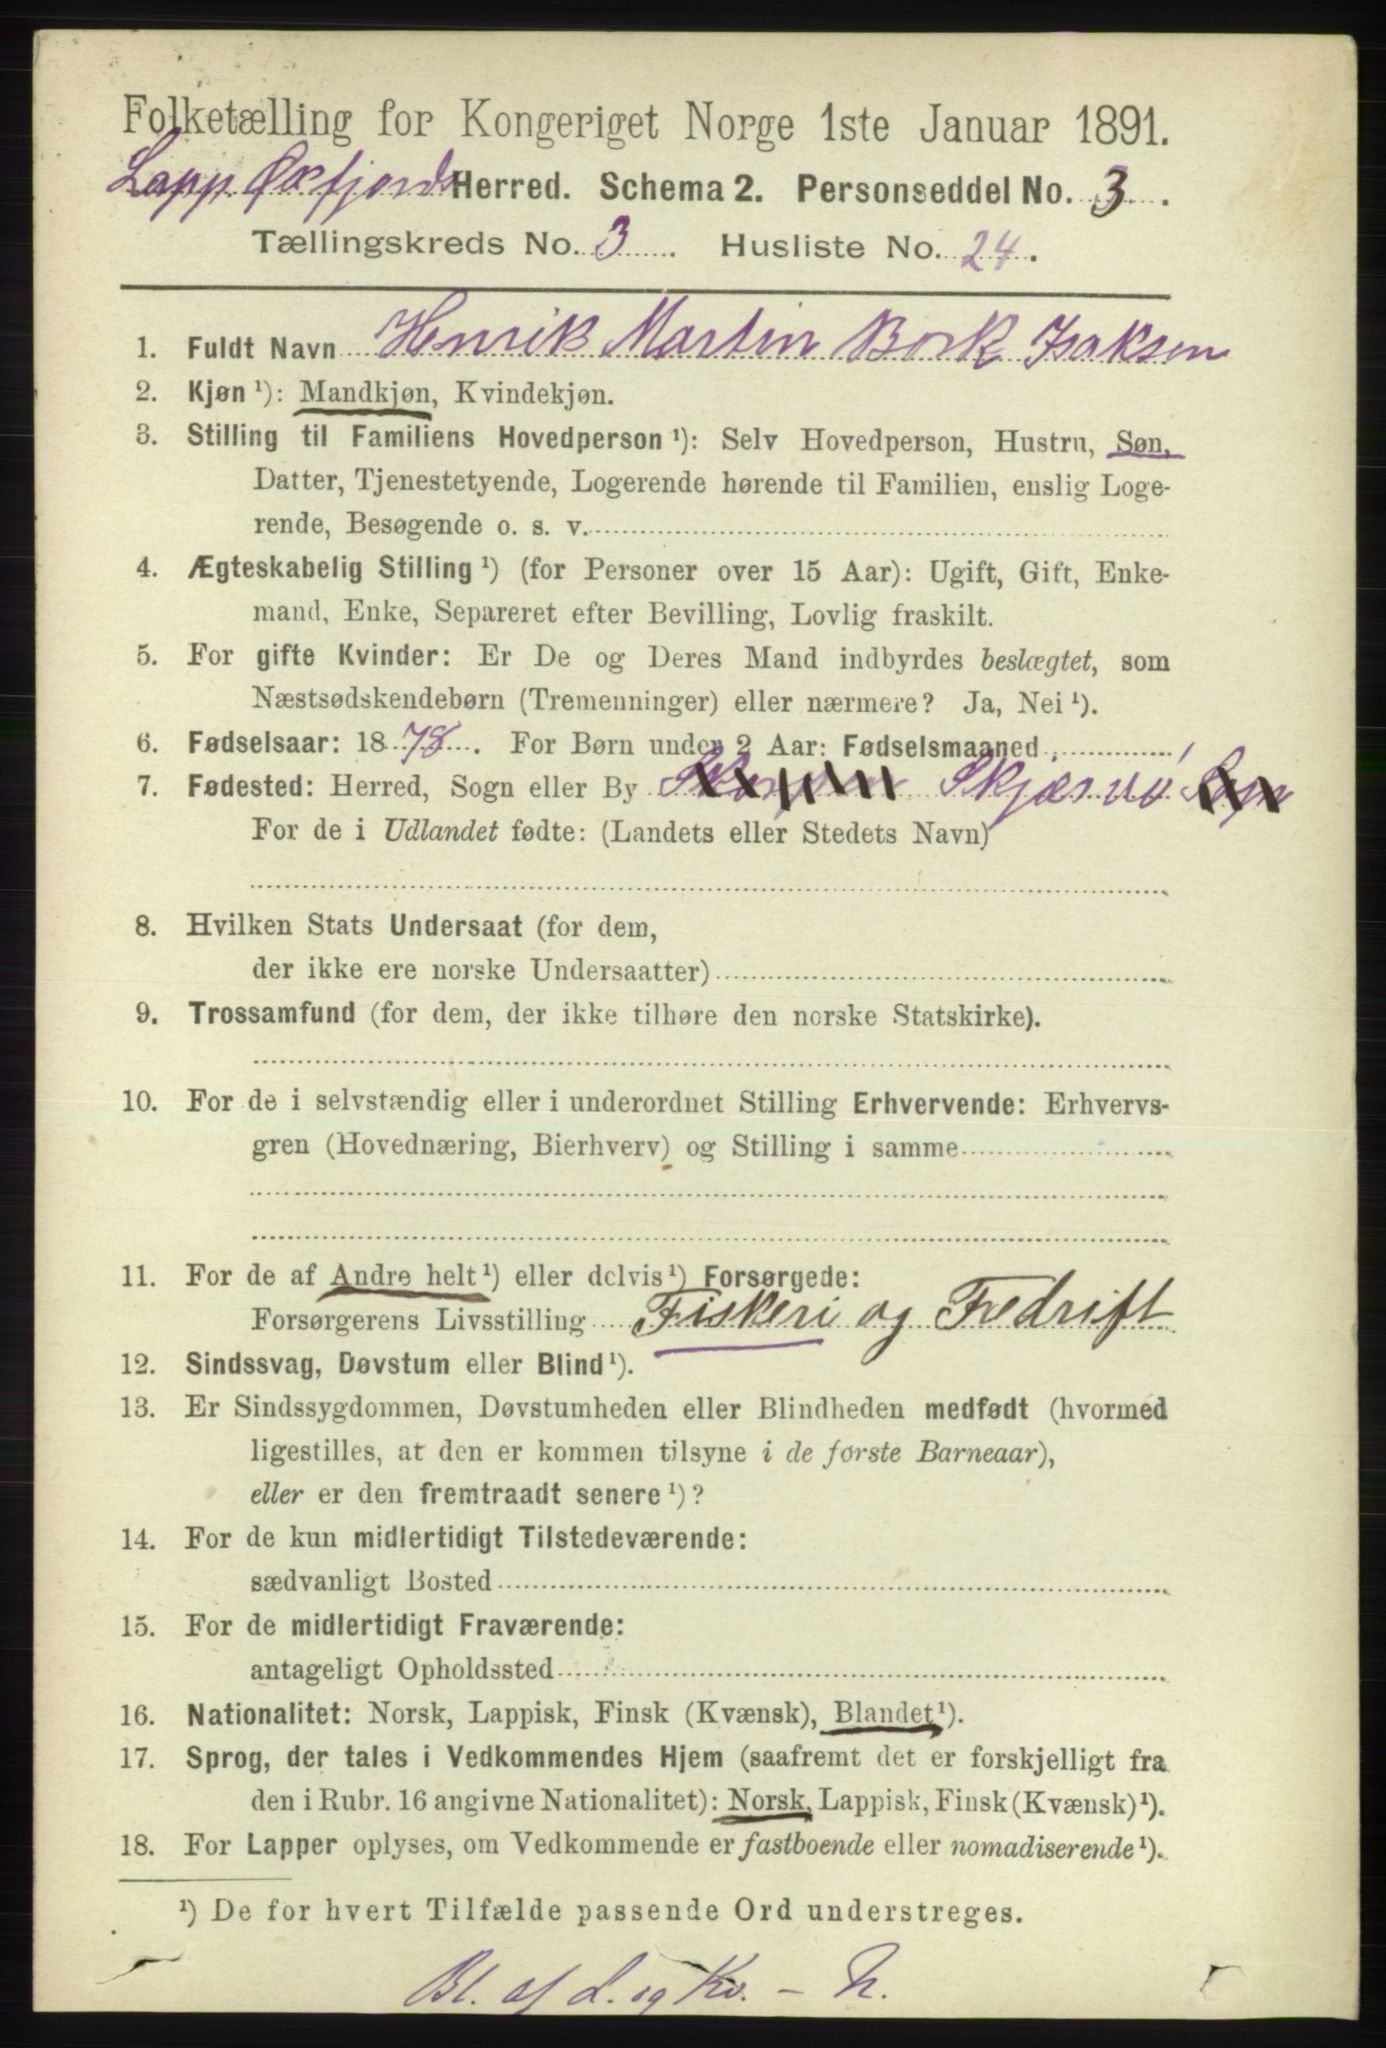 Folketælling for Kongeriget Norge 1ste Januar 1891.
Lapp. Øxfjords Herred. Schema 2. Personseddel No. 3.
Tællingskreds No. 3. Husliste No. 24.
1. Fuldt Navn Henrik Martin Bork Isaksen
2. Kjøn ¹): Mandkjøn, Kvindekjøn.
3. Stilling til Familiens Hovedperson ¹): Selv Hovedperson, Hustru, Søn,
Datter, Tjenestetyende, Logerende hørende til Familien, enslig Loge-
rende, Besøgende o. s. v.
4. Ægteskabelig Stilling ¹) (for Personer over 15 Aar): Ugift, Gift, Enke-
mand, Enke, Separeret efter Bevilling, Lovlig fraskilt.
5. For gifte Kvinder: Er De og Deres Mand indbyrdes beslægtet, som
Næstsødskendebørn (Tremenninger) eller nærmere? Ja, Nei ¹).
6. Fødselsaar: 1878. For Børn under 2 Aar: Fødselsmaaned
7. Fødested: Herred, Sogn eller By Skjærvø
For de i Udlandet fødte: (Landets eller Stedets Navn)
8. Hvilken Stats Undersaat (for dem,
der ikke ere norske Undersaatter)
9. Trossamfund (for dem, der ikke tilhøre den norske Statskirke).
10. For de i selvstændig eller i underordnet Stilling Erhvervende: Erhvervs-
gren (Hovednæring, Bierhverv) og Stilling i samme
11. For de af Andre helt ¹) eller delvis ¹) Forsørgede:
Forsørgerens Livsstilling Fiskeri og Fædrift
12. Sindssvag, Døvstum eller Blind ¹).
13. Er Sindssygdommen, Døvstumheden eller Blindheden medfødt (hvormed
ligestilles, at den er kommen tilsyne i de første Barneaar),
eller er den fremtraadt senere ¹)?
14. For de kun midlertidigt Tilstedeværende:
sædvanligt Bosted
15. For de midlertidigt Fraværende:
antageligt Opholdssted
16. Nationalitet: Norsk, Lappisk, Finsk (Kvænsk), Blandet ¹).
17. Sprog, der tales i Vedkommendes Hjem (saafremt det er forskjelligt fra
den i Rubr. 16 angivne Nationalitet): Norsk, Lappisk, Finsk (Kvænsk) ¹).
18. For Lapper oplyses, om Vedkommende er fastboende eller nomadiserende ¹).
¹) De for hvert Tilfælde passende Ord understreges.
Bl. af L. og Kv. – N.